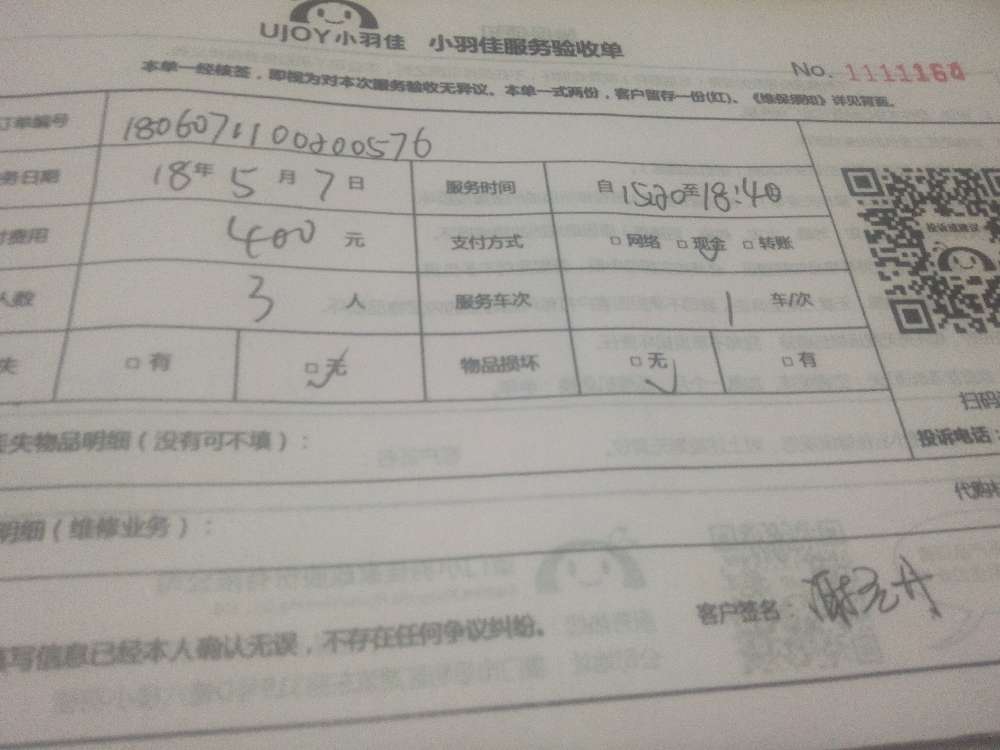 UJOY小羽佳 小羽佳服务验收单
No. 1111164
本单一经核签，即视为对本次服务验收无异议。本单一式两份，客户留存一份(红)、《维保须知》详见背面。
订单编号 1806071100200576
务日期 18年5月7日 服务时间 自15:20至18:40
费用 400元 支付方式 □网络 □现金 □转账
人数 3人 服务车次 1车/次
失 □有 □无 物品损坏 □无 □有
投诉或建议
扫码
失物品明细（没有可不填）： 投诉电话：
明细（维修业务）：
写信息已经本人确认无误，不存在任何争议纠纷。 客户签名：